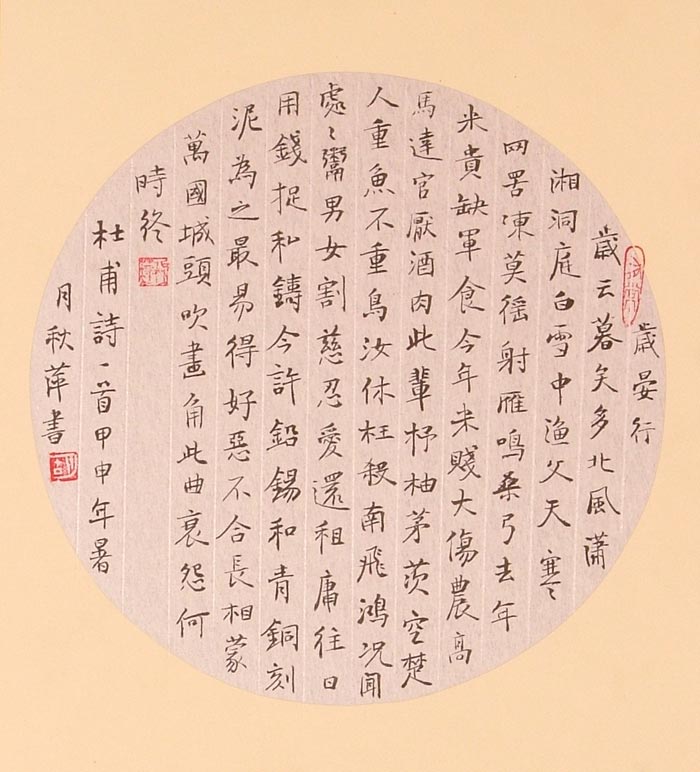 歲晏行
歲云暮矣多北風瀟
湘洞庭白雪中渔父天寒
网罟凍莫徭射雁鳴桑弓去年
米貴缺軍食今年米賤大傷農高
馬達官厭酒肉此輩杼柚茅茨空楚
人重魚不重鳥汝休枉殺南飛鴻況聞
處〻鬻男女割慈忍愛還租庸往日
用錢捉和鑄今許鉛錫和青銅刻
泥為之最易得好惡不合長相蒙
萬國城頭吹畫角此曲哀怨何
時終
杜甫詩一首甲申年暑
月秋萍書